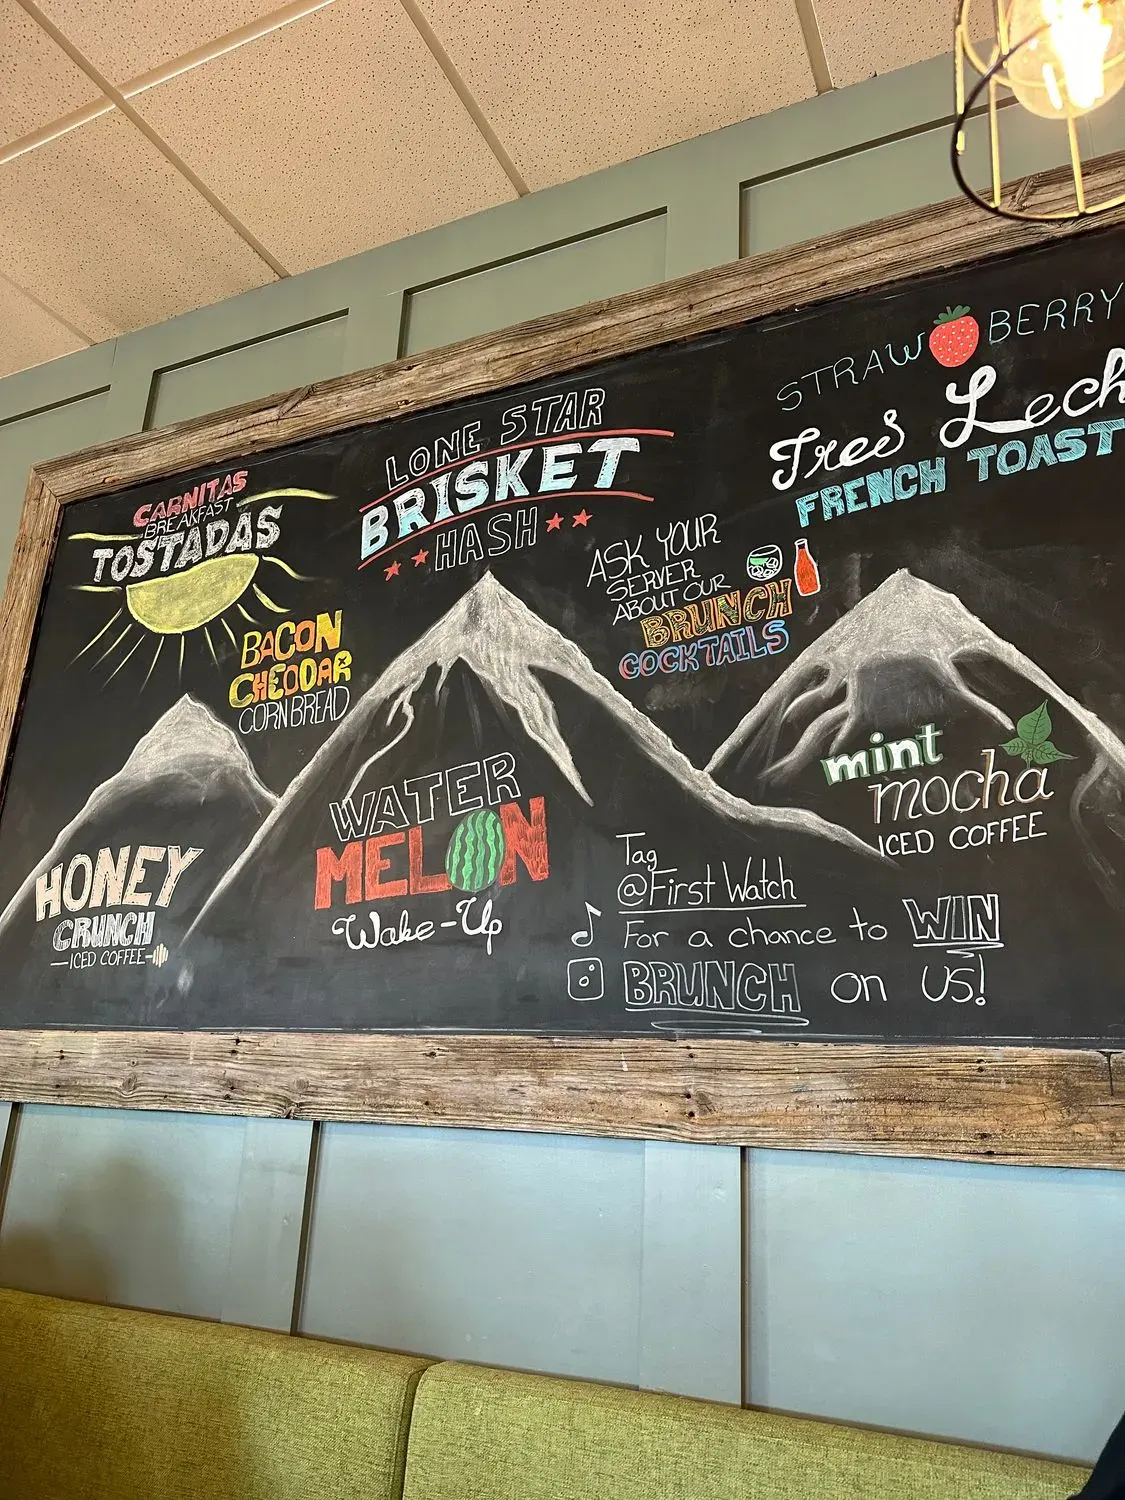 CARNITAS
BREAKFAST
TOSTADAS
LONE STAR
BRISKET
HASH
STRAWBERRY
Tres Lech
FRENCH TOAST
BACON
CHEDDAR
CORNBREAD
ASK YOUR
SERVER
ABOUT OUR
BRUNCH
COCKTAILS
HONEY
CRUNCH
ICED COFFEE
WATER
MELON
Wake-Up
mint
mocha
ICED COFFEE
Tag
@First Watch
For a chance to WIN
BRUNCH on US!